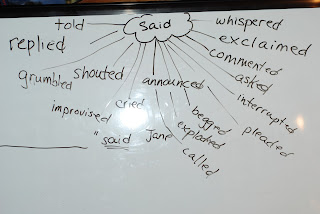 said
told
whispered
replied
exclaimed
commented
grumbled
shouted
announced
asked
interrupted
improvised
cried
begged
exploded
pleaded
called
" said Jane